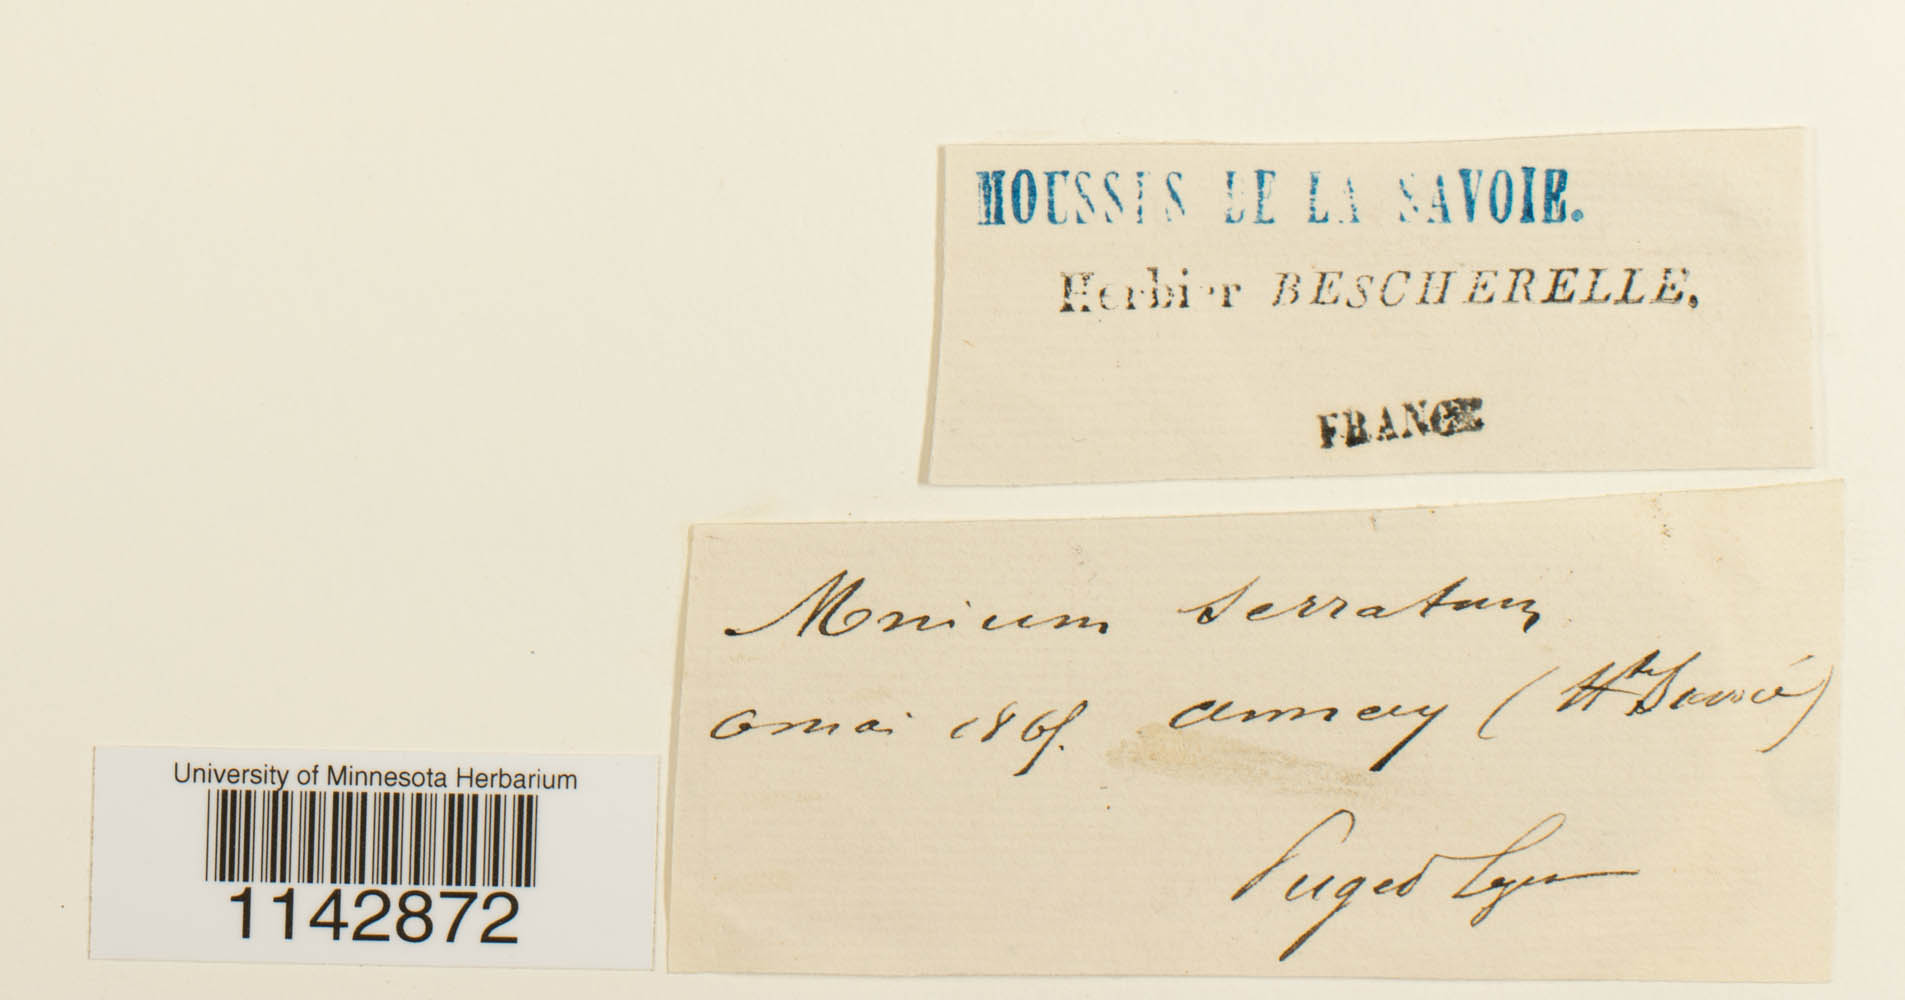 MOUSSES DE LA SAVOIE.
Herbier BESCHERELLE,
FRANCE
Mnium serratum
6 mai 186 annecy (Hte Savoie)
Puget Legit
University of Minnesota Herbarium
1142872